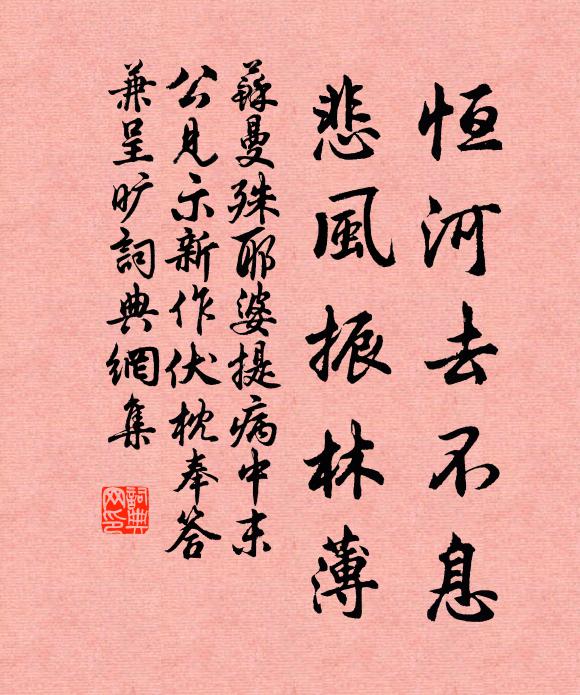 恒河去不息
悲風振林薄
蘇曼殊耶婆提病中末
公見示新作伏枕奉答
兼呈旷詞典網集
詞典網印